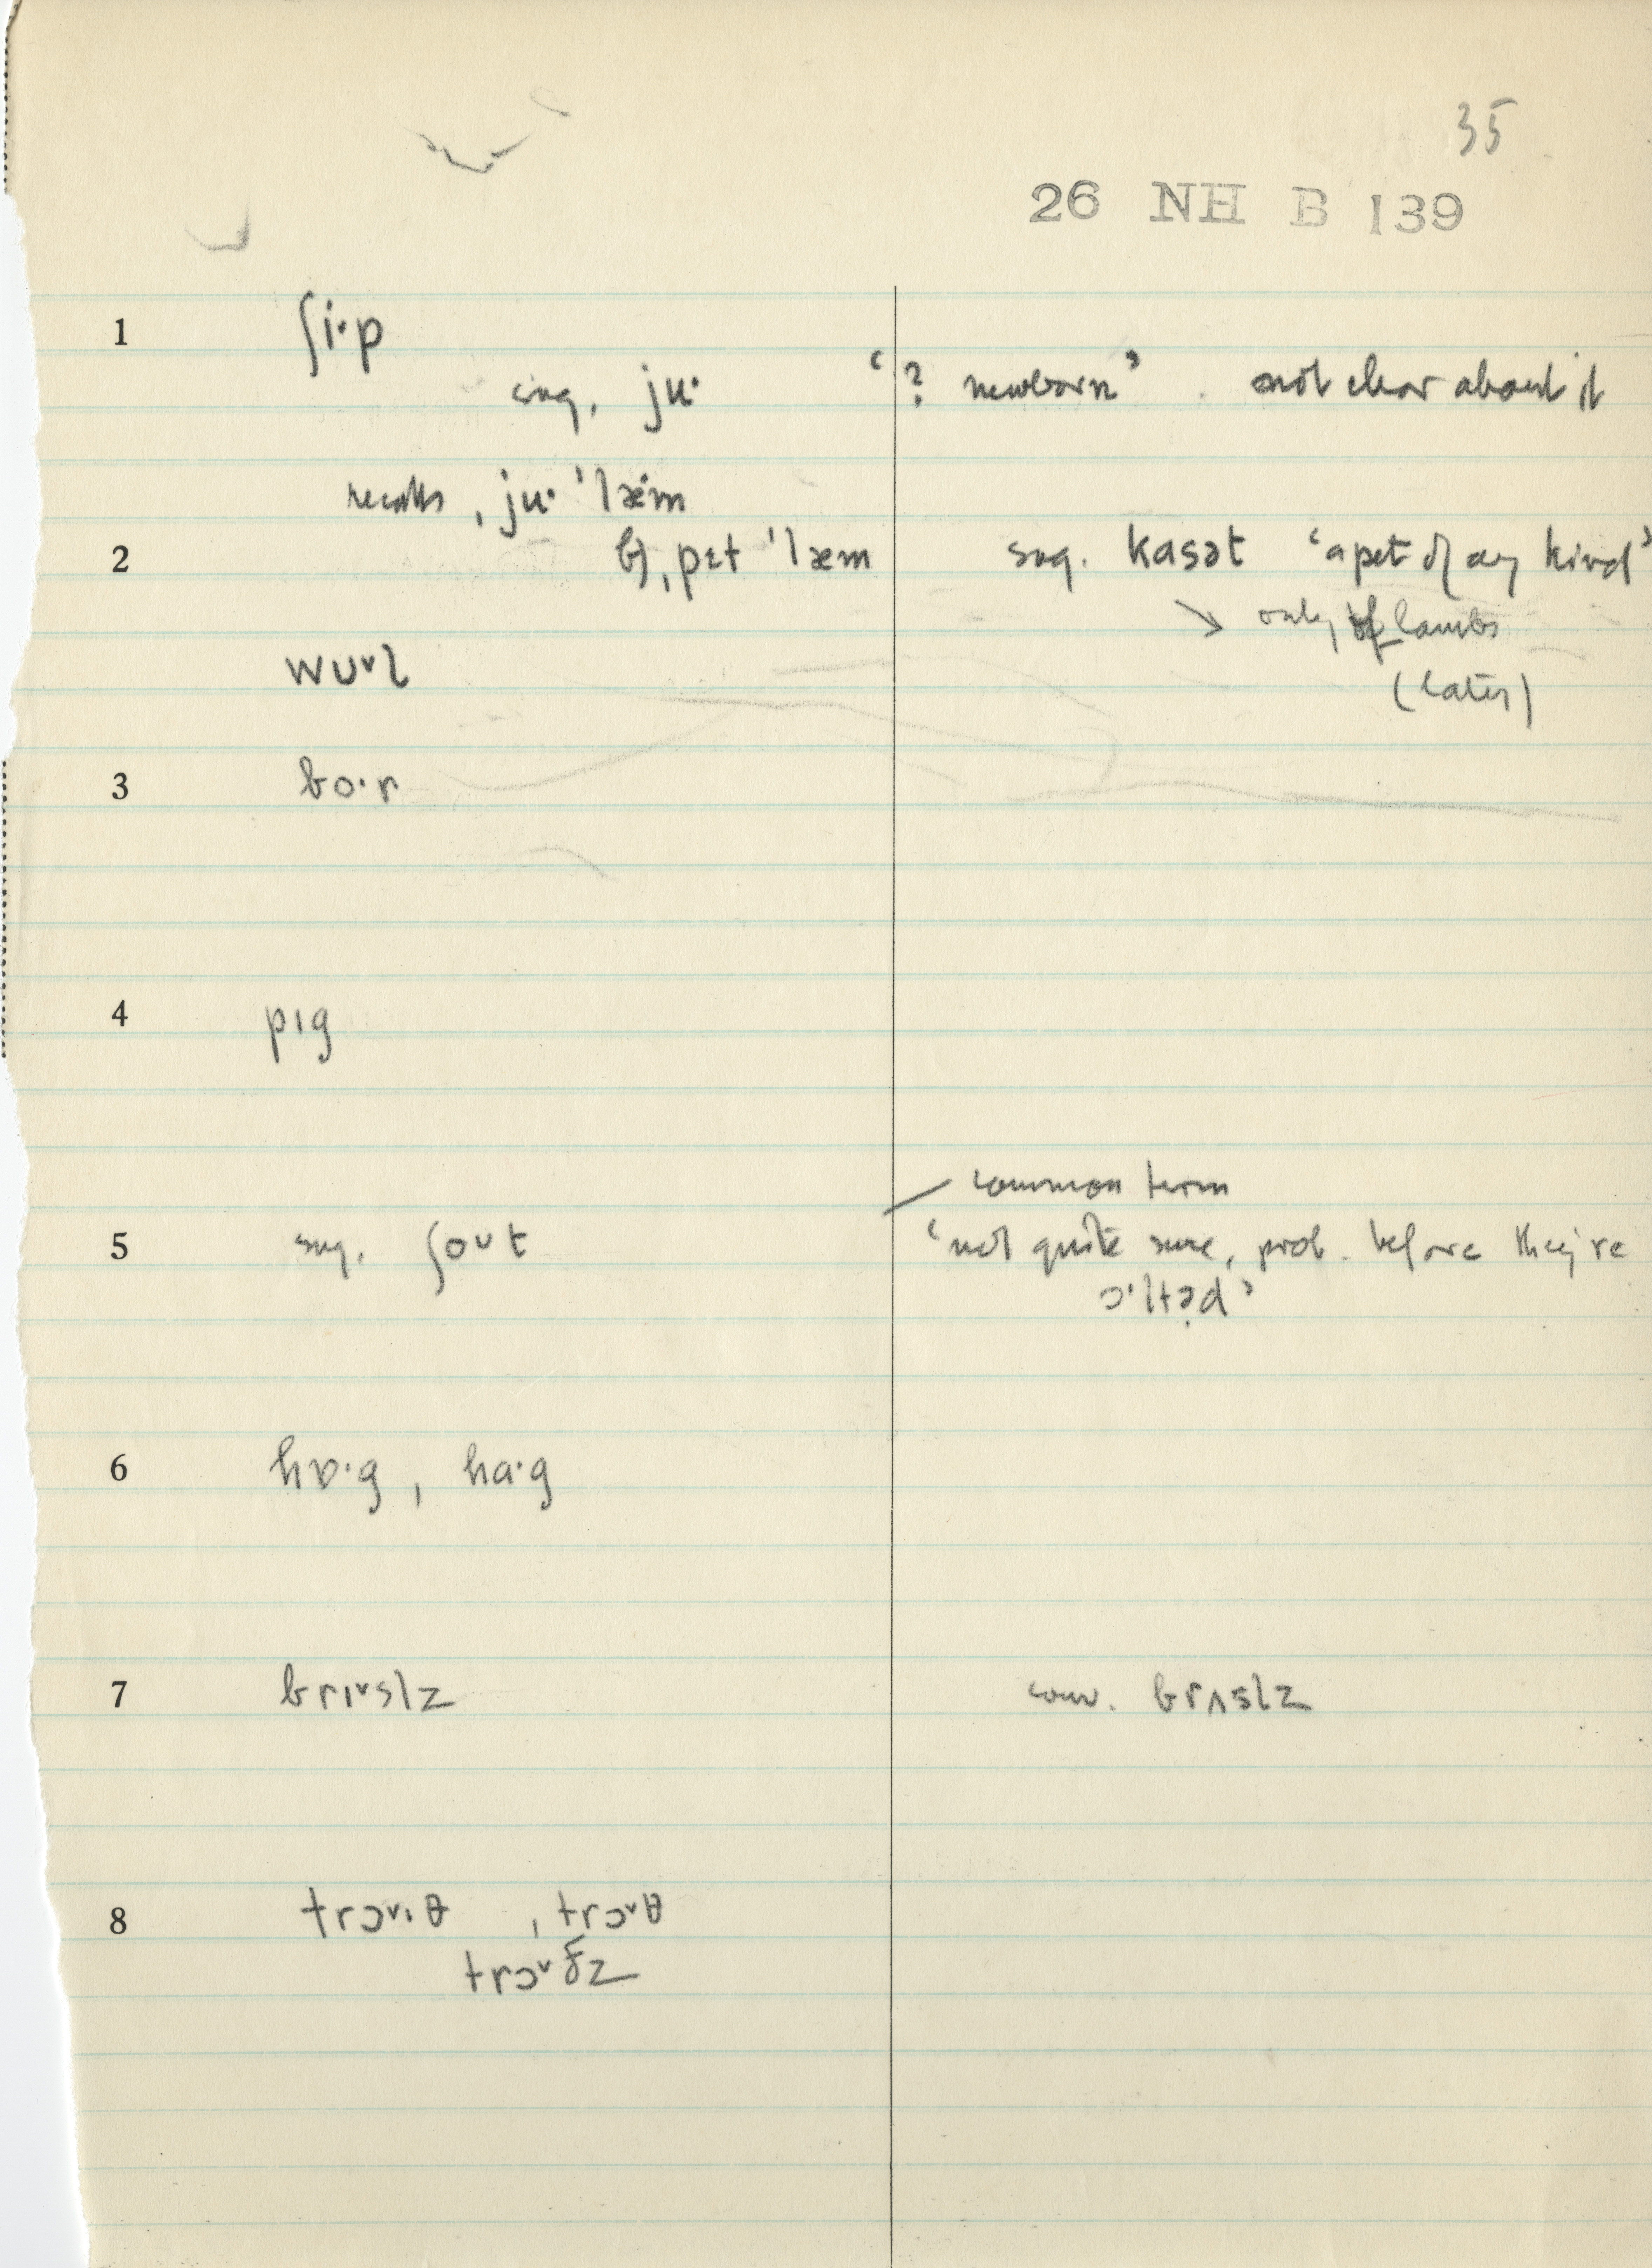 35
26 NH B 139
1 ʃi·p
sug. ju· ‘? newborn’ not clear about it
recalls, ju· ˈlæ·m
2 b), pɛt ˈlæm sug. kasət ‘a pet of any kind’
↘ only of lambs
wʊ˅l
(later)
3 bo·r
4 pɪg
common term
5 sug. ʃoʊt ‘not quite sure, prob. before they're
ɔ·ltəd’
6 hɒ·g, ha·g
7 brɪ˅slz conv. brʌslz
8 trɔ˅·θ , trɔ˅θ
trɔ˅ðz